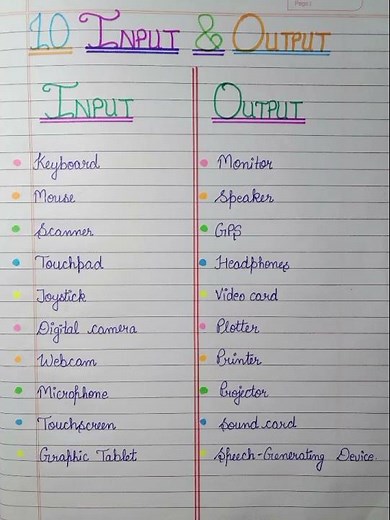 Page:
10 INPUT & OUTPUT
INPUT
OUTPUT
Keyboard
Mouse
Scanner
Touchpad
Joystick
Digital camera
Webcam
Microphone
Touchscreen
Graphic Tablet
Monitor
Speaker
GPS
Headphones
Video card
Plotter
Printer
Projector
Sound card
Speech-Generating Device